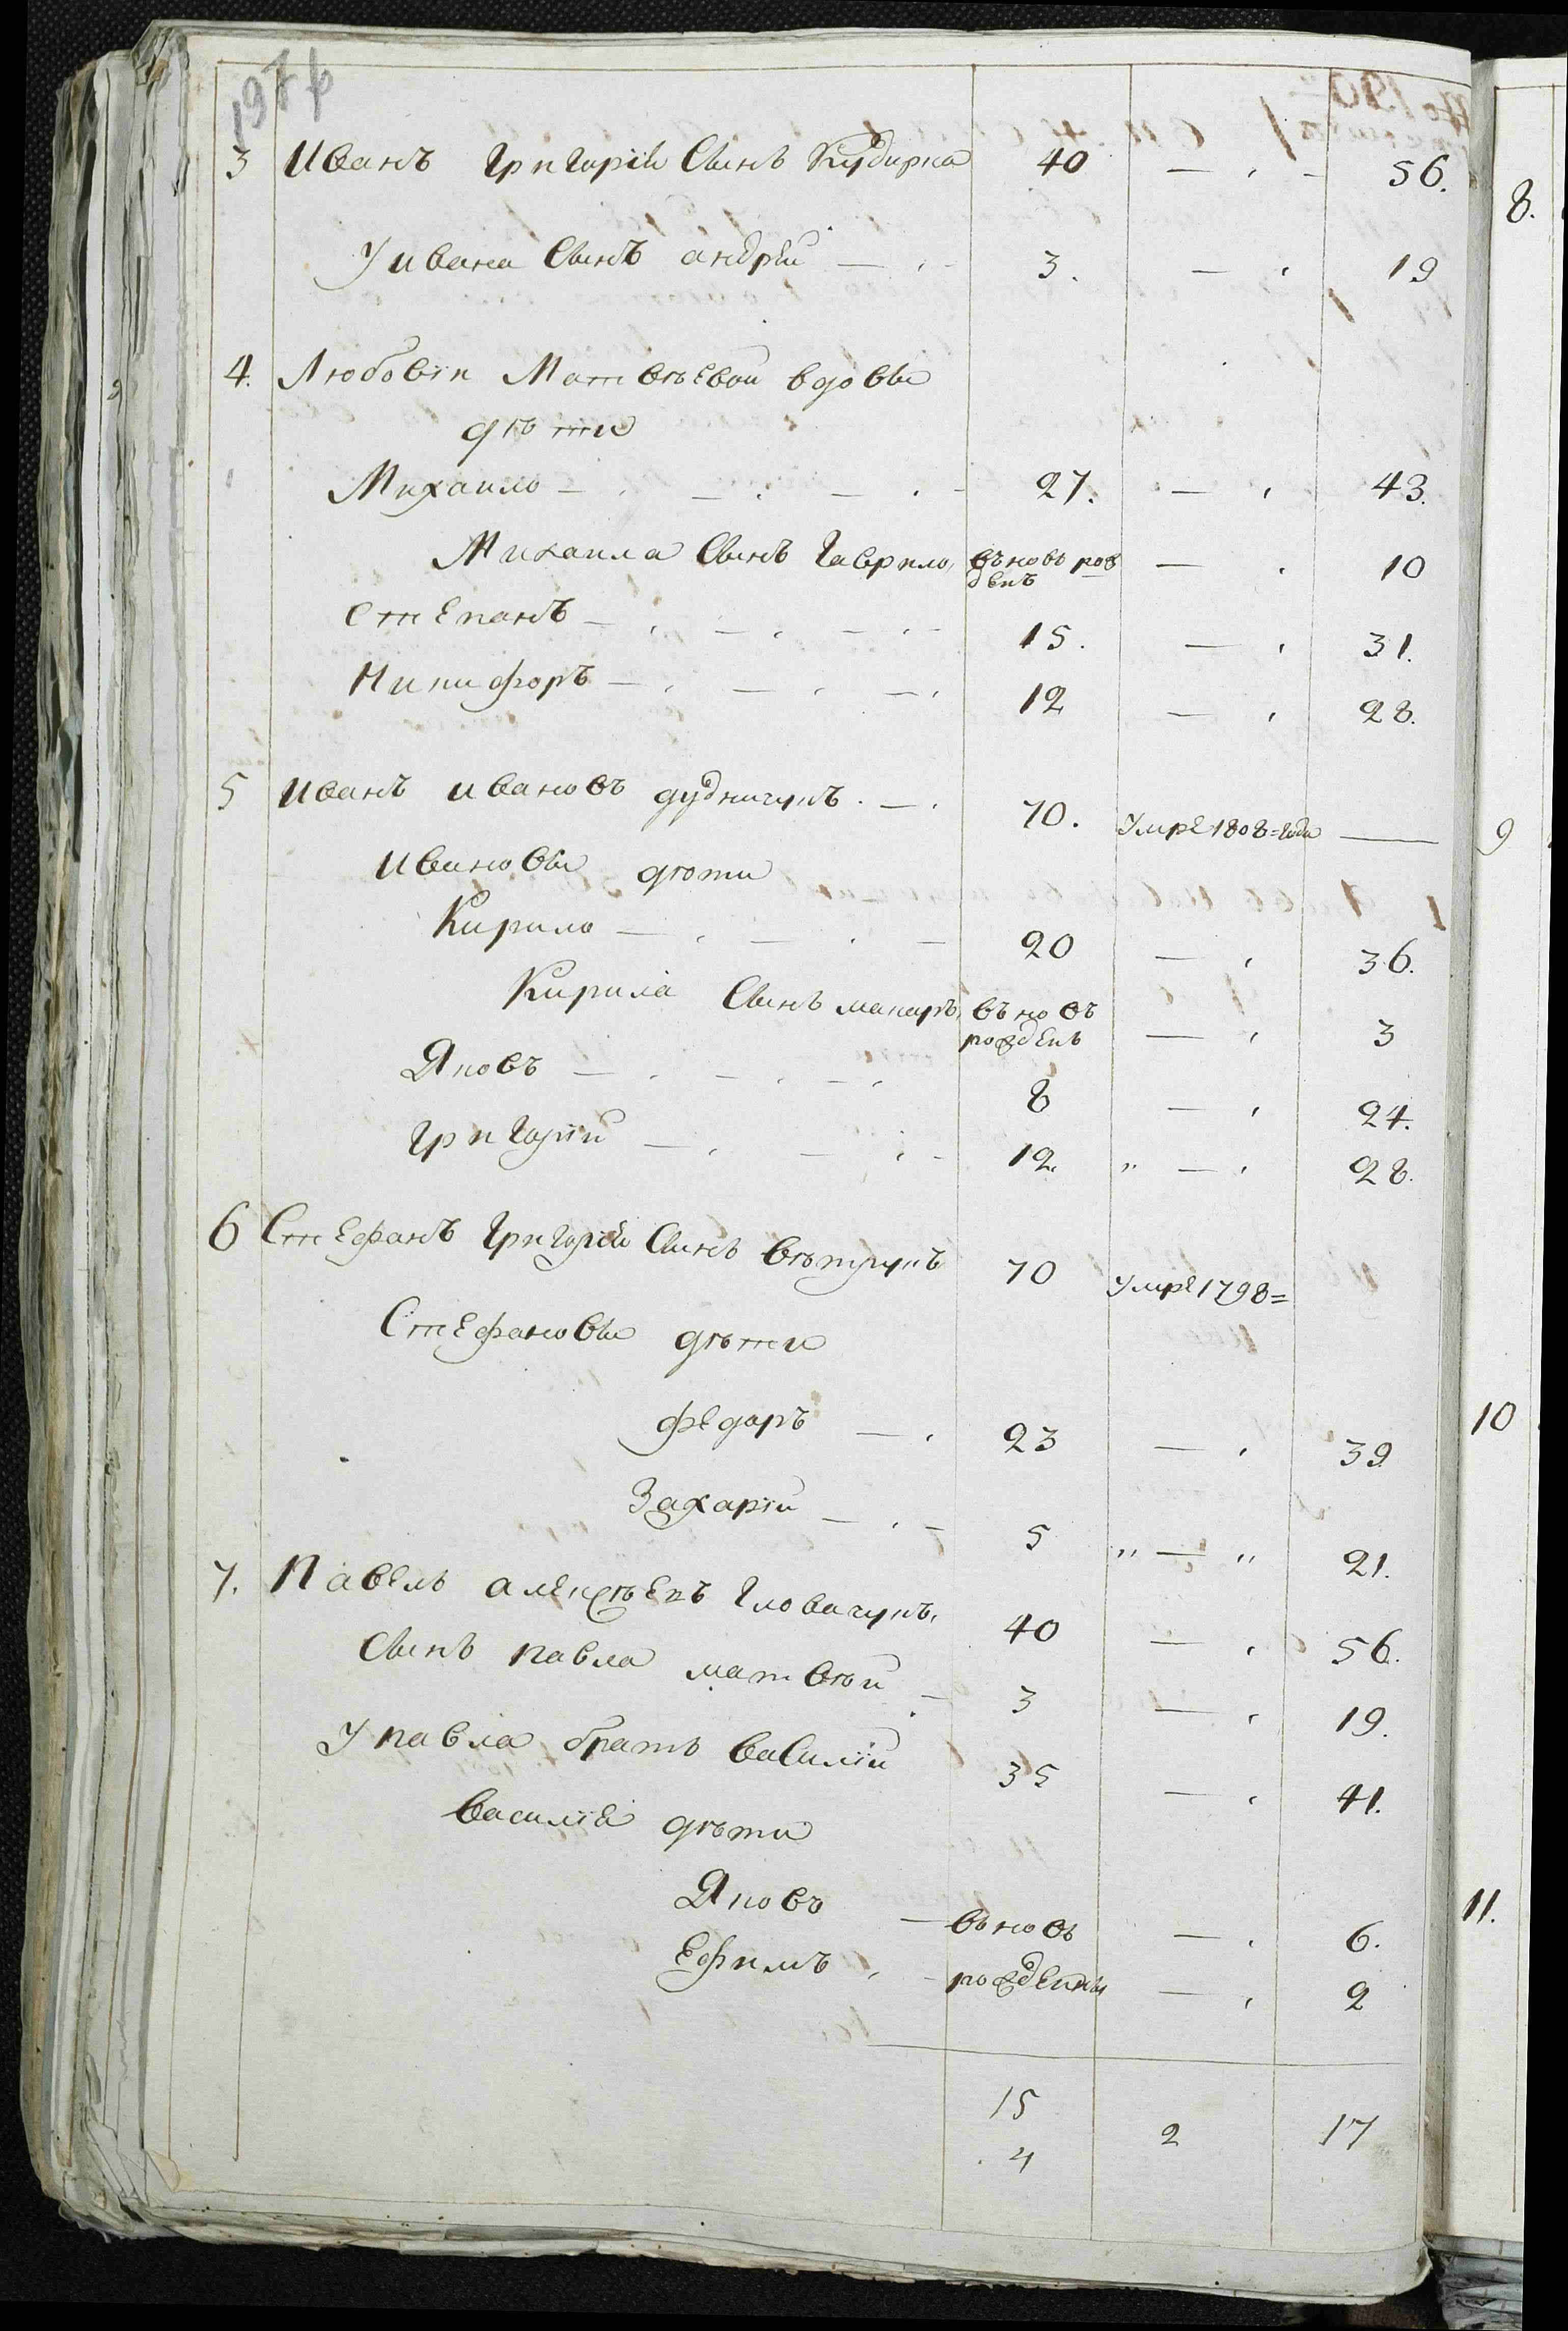 197 б
3 Иванъ Григорій Сынъ Кудирка 40 — 56.
У ивана Сынъ андрѣй — 3. — 19
4. Любовіи Матвѣевой вдовы
дѣти
Михаило — 27. — 43.
Михаила Сынъ Гаврило, въновь рож — 10
денъ
Степанъ — 15. — 31.
Никифоръ — 12 — 28.
5 Иванъ ивановъ дудничукъ. — 70. Умре 1808 = года —
Ивановы дѣти
Кирило — 20 — 36.
Кирила Сынъ макаръ, въновъ — 3
рожденъ
Яковъ — 8 — 24.
Григорій — 12. „ — 28.
6 Стефанъ Григорій Сынъ 70 Умре 1798 =
Стефановы дѣти
Федоръ — 23 — 39
Захарій — 5 „ — „ 21.
7. Павелъ алексѣевъ Гловачукъ, 40 — 56.
Сынъ павла матвѣй — 3 — 19.
У павла братъ василій 35 — 41.
василіа дѣти
Яковъ — въновь — 6.
Ефимъ, — рождены — 2
15 2 17
4
8.
9
10
11.